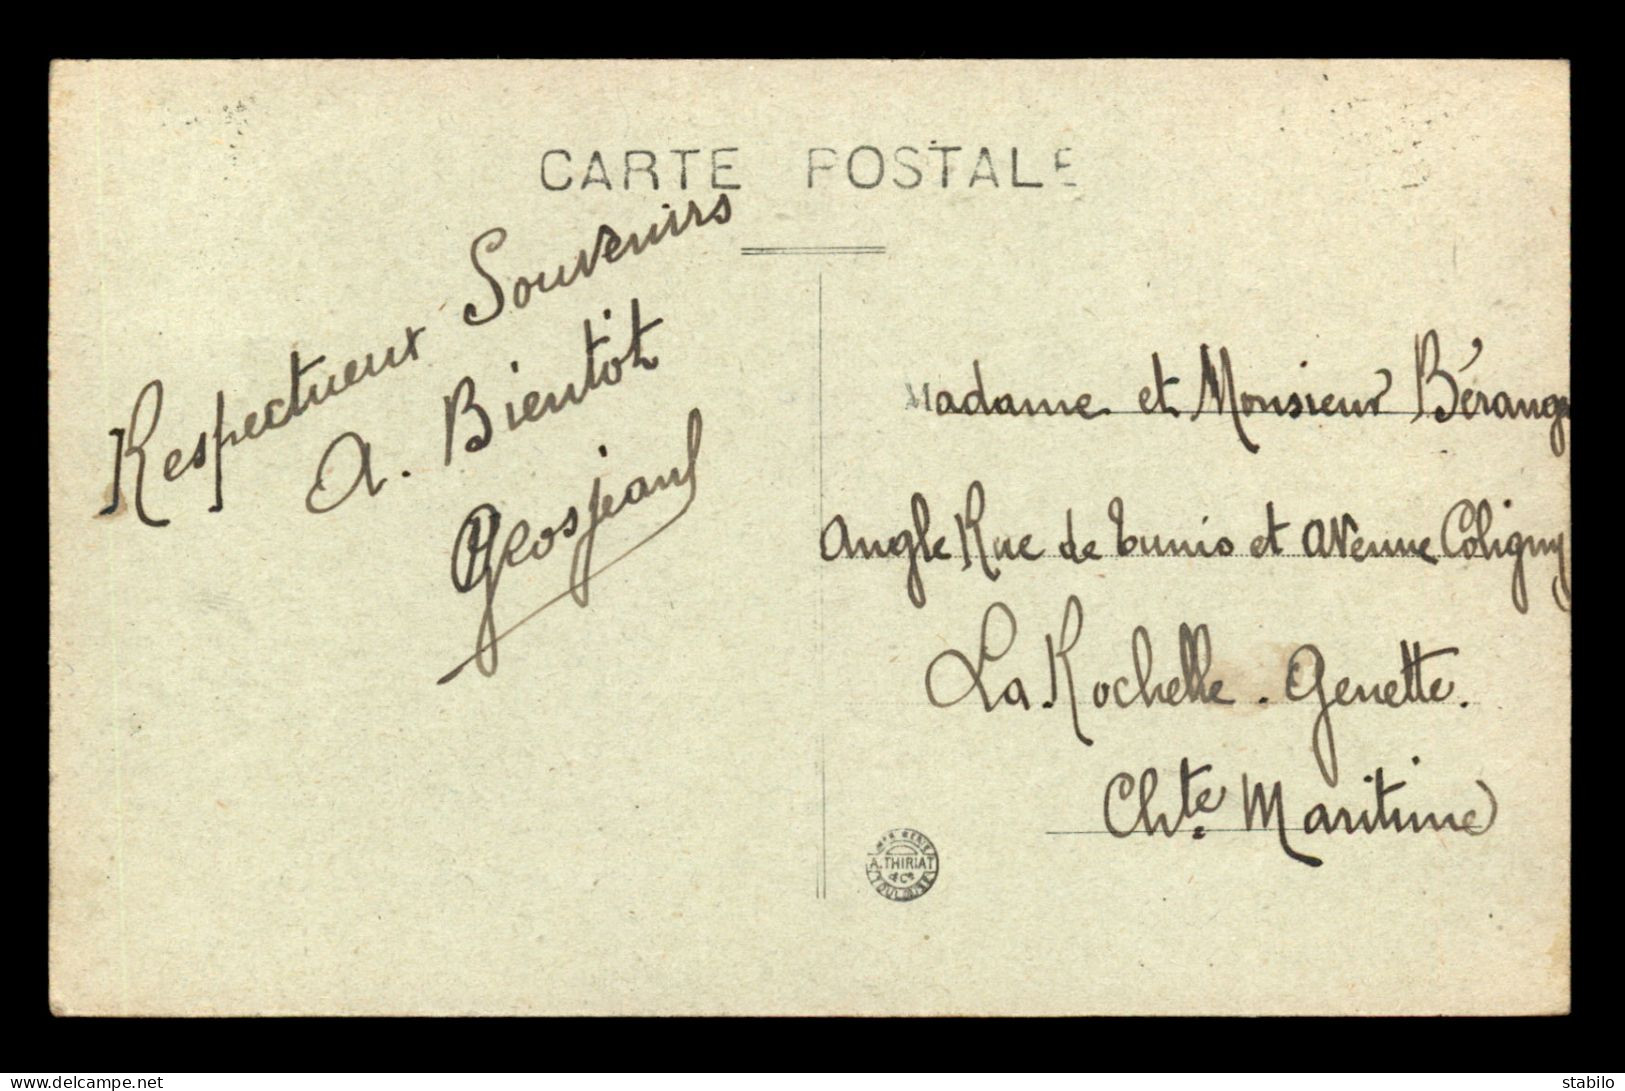 CARTE POSTALE
Respectueux Souvenirs
A. Bientot
Grosjean
Madame et Monsieur Bérang
Angle Rue de Tunis et Avenue Coligny
La Rochelle. Genette.
Chte. Maritime
A. THIRIAT
& Cie
TOULOUSE
delcampe.net
stabilo